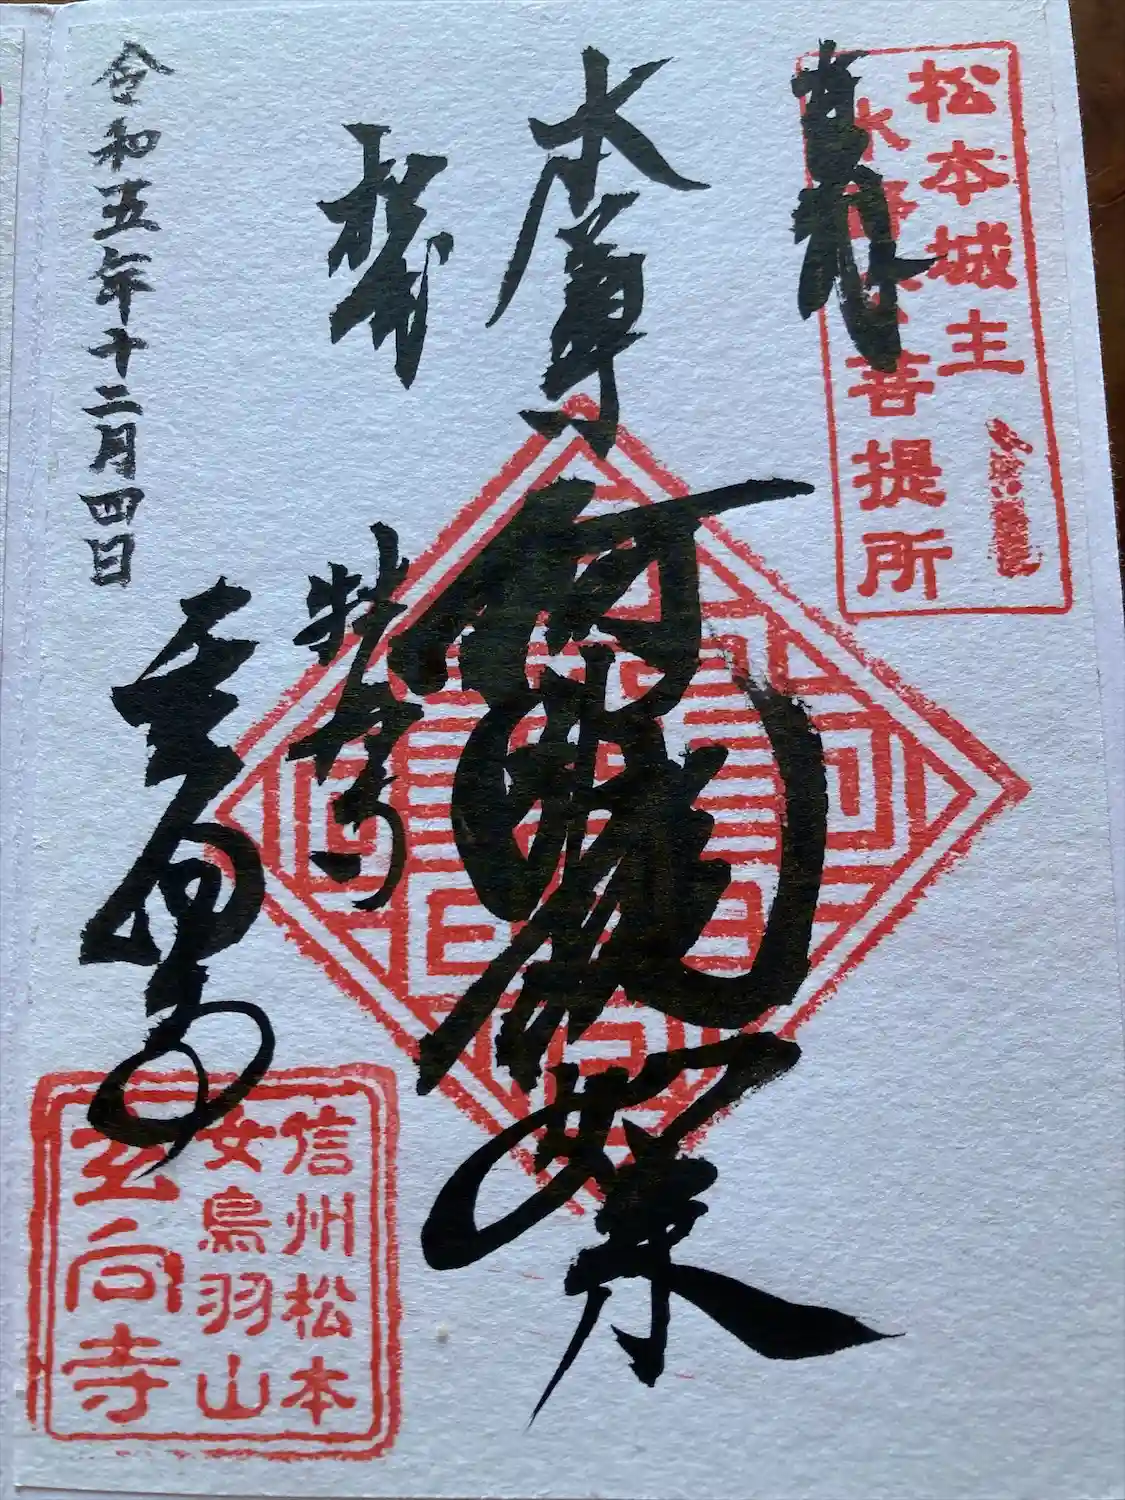 奉拝
松本城主
水野家菩提所
本尊
阿弥陀如来
松本
特命寺
玄向寺
令和五年十二月四日
信州松本
女鳥羽山
玄向寺